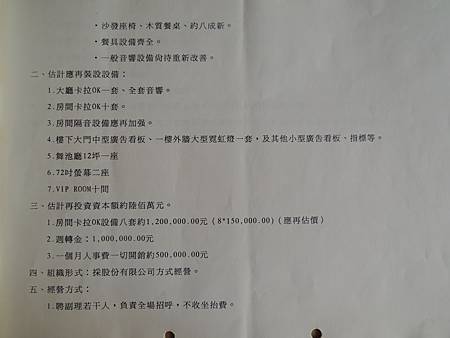 ・沙發座椅、木質餐桌、約八成新。
・餐具設備齊全。
・一般音響設備尚待重新改善。
二、估計應再裝設設備：
1.大廳卡拉OK一套、全套音響。
2.房間卡拉OK十套。
3.房間隔音設備應再加強。
4.樓下大門中型廣告看板、一樓外牆大型霓虹燈一套，及其他小型廣告看板、指標等。
5.舞池廳12坪一座
6.72吋螢幕二座
7.VIP ROOM十間
三、估計再投資資本額約陸佰萬元。
1.房間卡拉OK設備八套約1,200,000.00元（8*150,000.00)（應再估價）
2.週轉金：1,000,000.00元
3.一個月人事費一切開銷約500,000.00元
四、組織形式：採股份有限公司方式經營。
五、經營方式：
1.聘副理若干人，負責全場招呼，不收坐抬費。